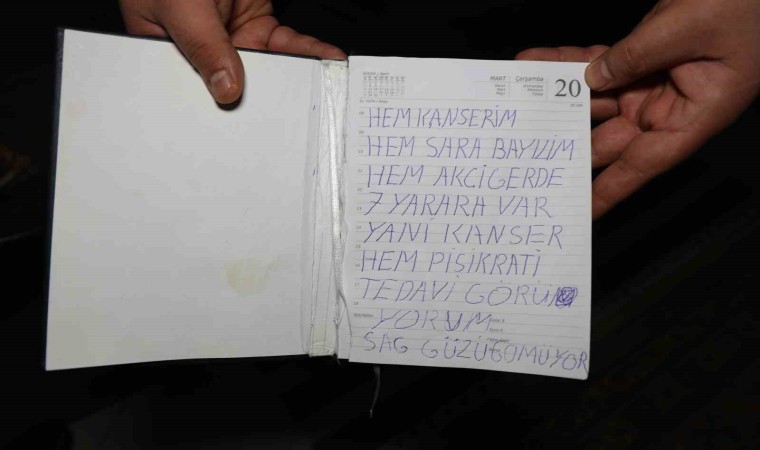 MART Çarşamba 20
HEM KANSERİM
HEM SARA BAYILIM
HEM AKCİGERDE
7 YARARA VAR
YANİ KANSER
HEM PİSİKRATİ
TEDAVİ GÖRÜ
YORUM
SAG GÜZÜGÖMÜYOR